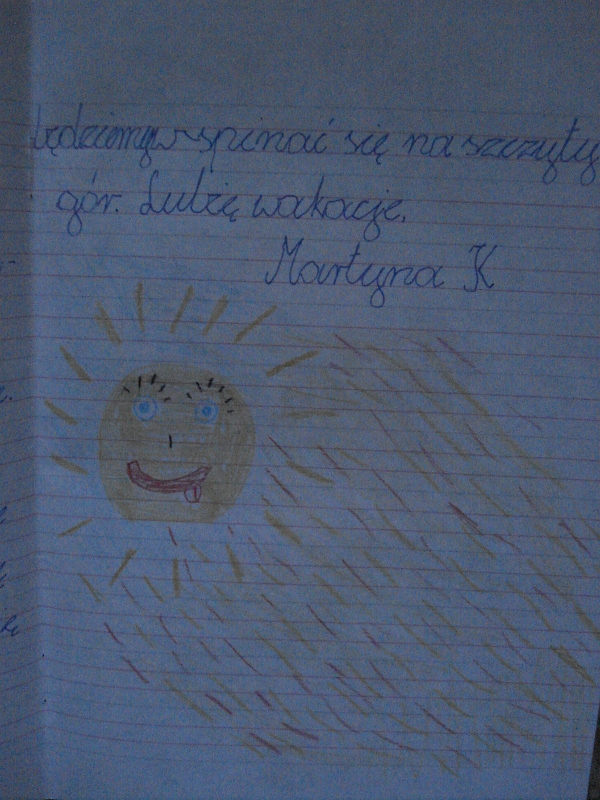 będziemy wspinać się na szczyty
gór. Lubię wakacje.
Martyna K